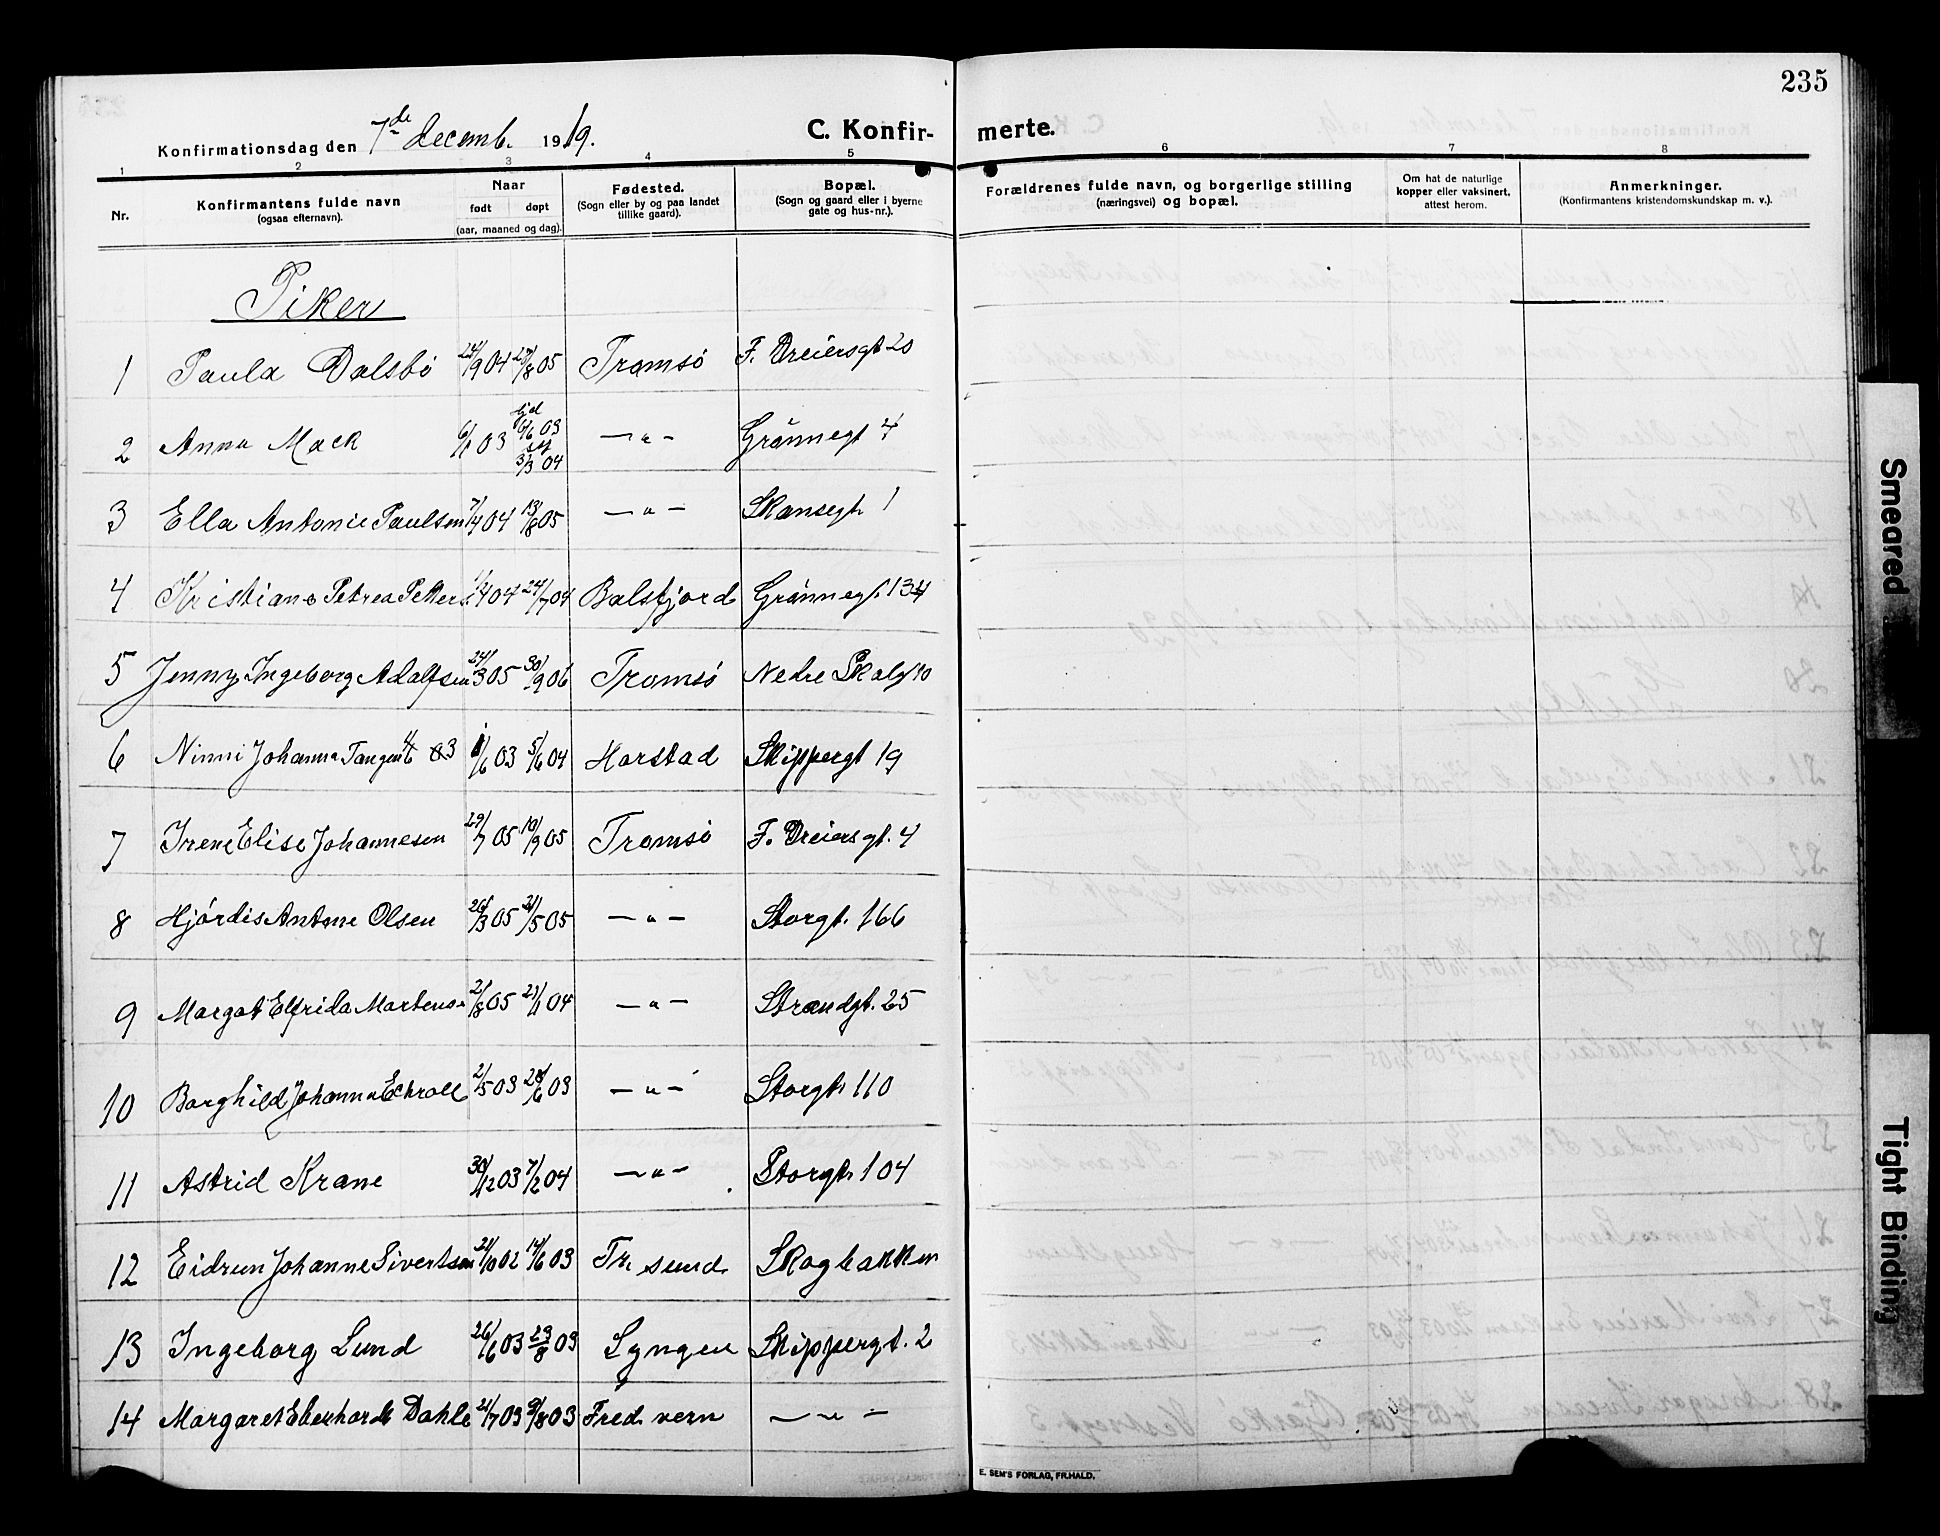 235
Konfirmationsdag den 7de decemb. 1919.
C. Konfir- merte.
1 2 3 4 5 6 7 8
Nr.
Konfirmantens fulde navn
(ogsaa efternavn).
Naar
født døpt
(aar, maaned og dag).
Fødested.
(Sogn eller by og paa landet
tillike gaard).
Bopæl.
(Sogn og gaard eller i byerne
gate og hus-nr.).
Forældrenes fulde navn, og borgerlige stilling
(næringsvei) og bopæl.
Om hat de naturlige
kopper eller vaksinert.
attest herom.
Anmerkninger.
(Konfirmantens kristendomskundskap m. v.).
Piker
1 Paula Dalsbö 24/9 04 27/8 05 Tromsö F. Dreiersgt 20
2 Anna Mack 6/1 03 6/6 03 3/3 04 —"— Grönnegt 4
3 Ella Antonie Paulsen 7/4 04 13/8 05 —"— Skansegt. 1
4 Kristiane Petrea 04 24/7 04 Balsfjord Grönnegt. 134
5 Jenny Ingeborg Adolfsen 24/3 05 30/9 06 Tromsö Nedre Skolegt 10
6 Ninni Johanna 03 5/6 04 Harstad Skippergt 19
7 Irene Elise Johannesen 29/7 05 10/9 05 Tromsö F. Dreiersgt. 4
8 Hjördis Antone Olsen 26/3 05 21/5 05 —"— Storgt. 166
9 Margot Elfrida 2/8 05 04 —"— Strandgt. 25
10 Borghild Johanna Eckroll 2/5 03 28/6 03 —"— Storgt. 110
11 Astrid Krane 30/12 03 7/2 04 —"— Storgt. 104
12 Eidrun Johanne Sivertsen 24/10 02 14/6 03 Tr. sund Skogbakken
13 Ingeborg Lund 26/6 03 23/8 03 Lyngen Skippergt. 2
14 Margaret Eberhardt Dahle 21/7 03 9/8 03 Fred. vern —"—
E. SEM'S FORLAG, FR.HALD.
Smeared
Tight Binding